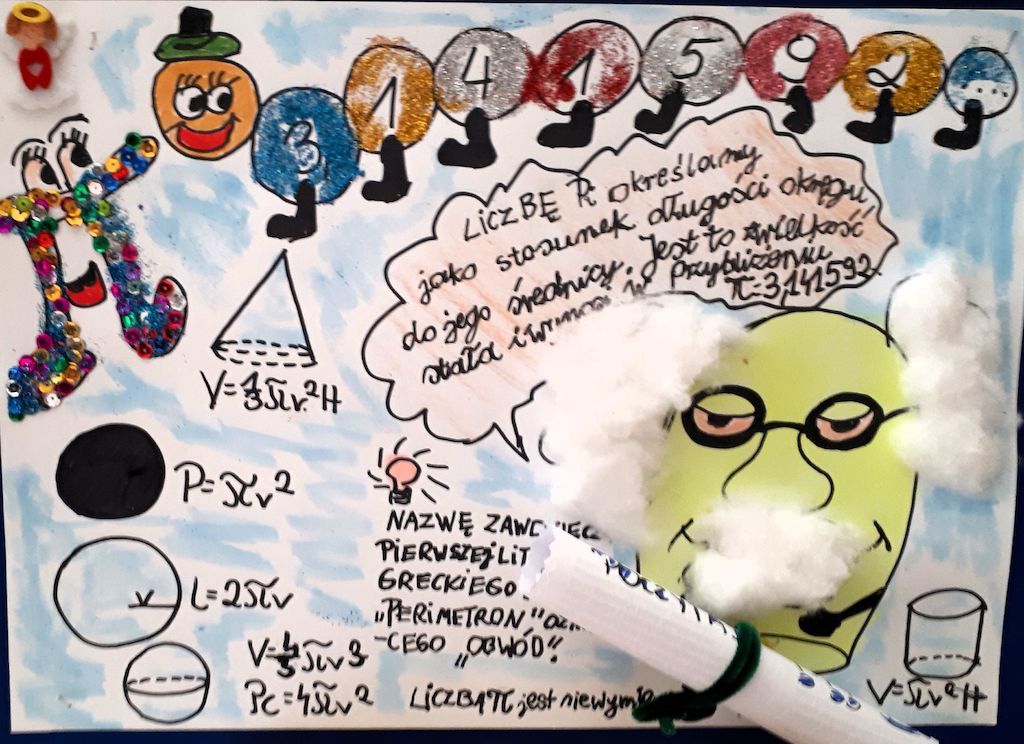 3 1 4 1 5 9 2 ...
LICZBĘ Pi określamy
jako stosunek długości okręgu
do jego średnicy. Jest to wielkość
stała i w przybliżeniu
π=3,141592.
V=1/3πr²H
P=πr²
r
L=2πr
V=4/3πr3
Pc=4πr²
NAZWĘ
PIERWSZEJ
GRECKIEGO
„PERIMETRON"
-CEGO „OBWÓD".
LICZBA π jest
V=πr²H